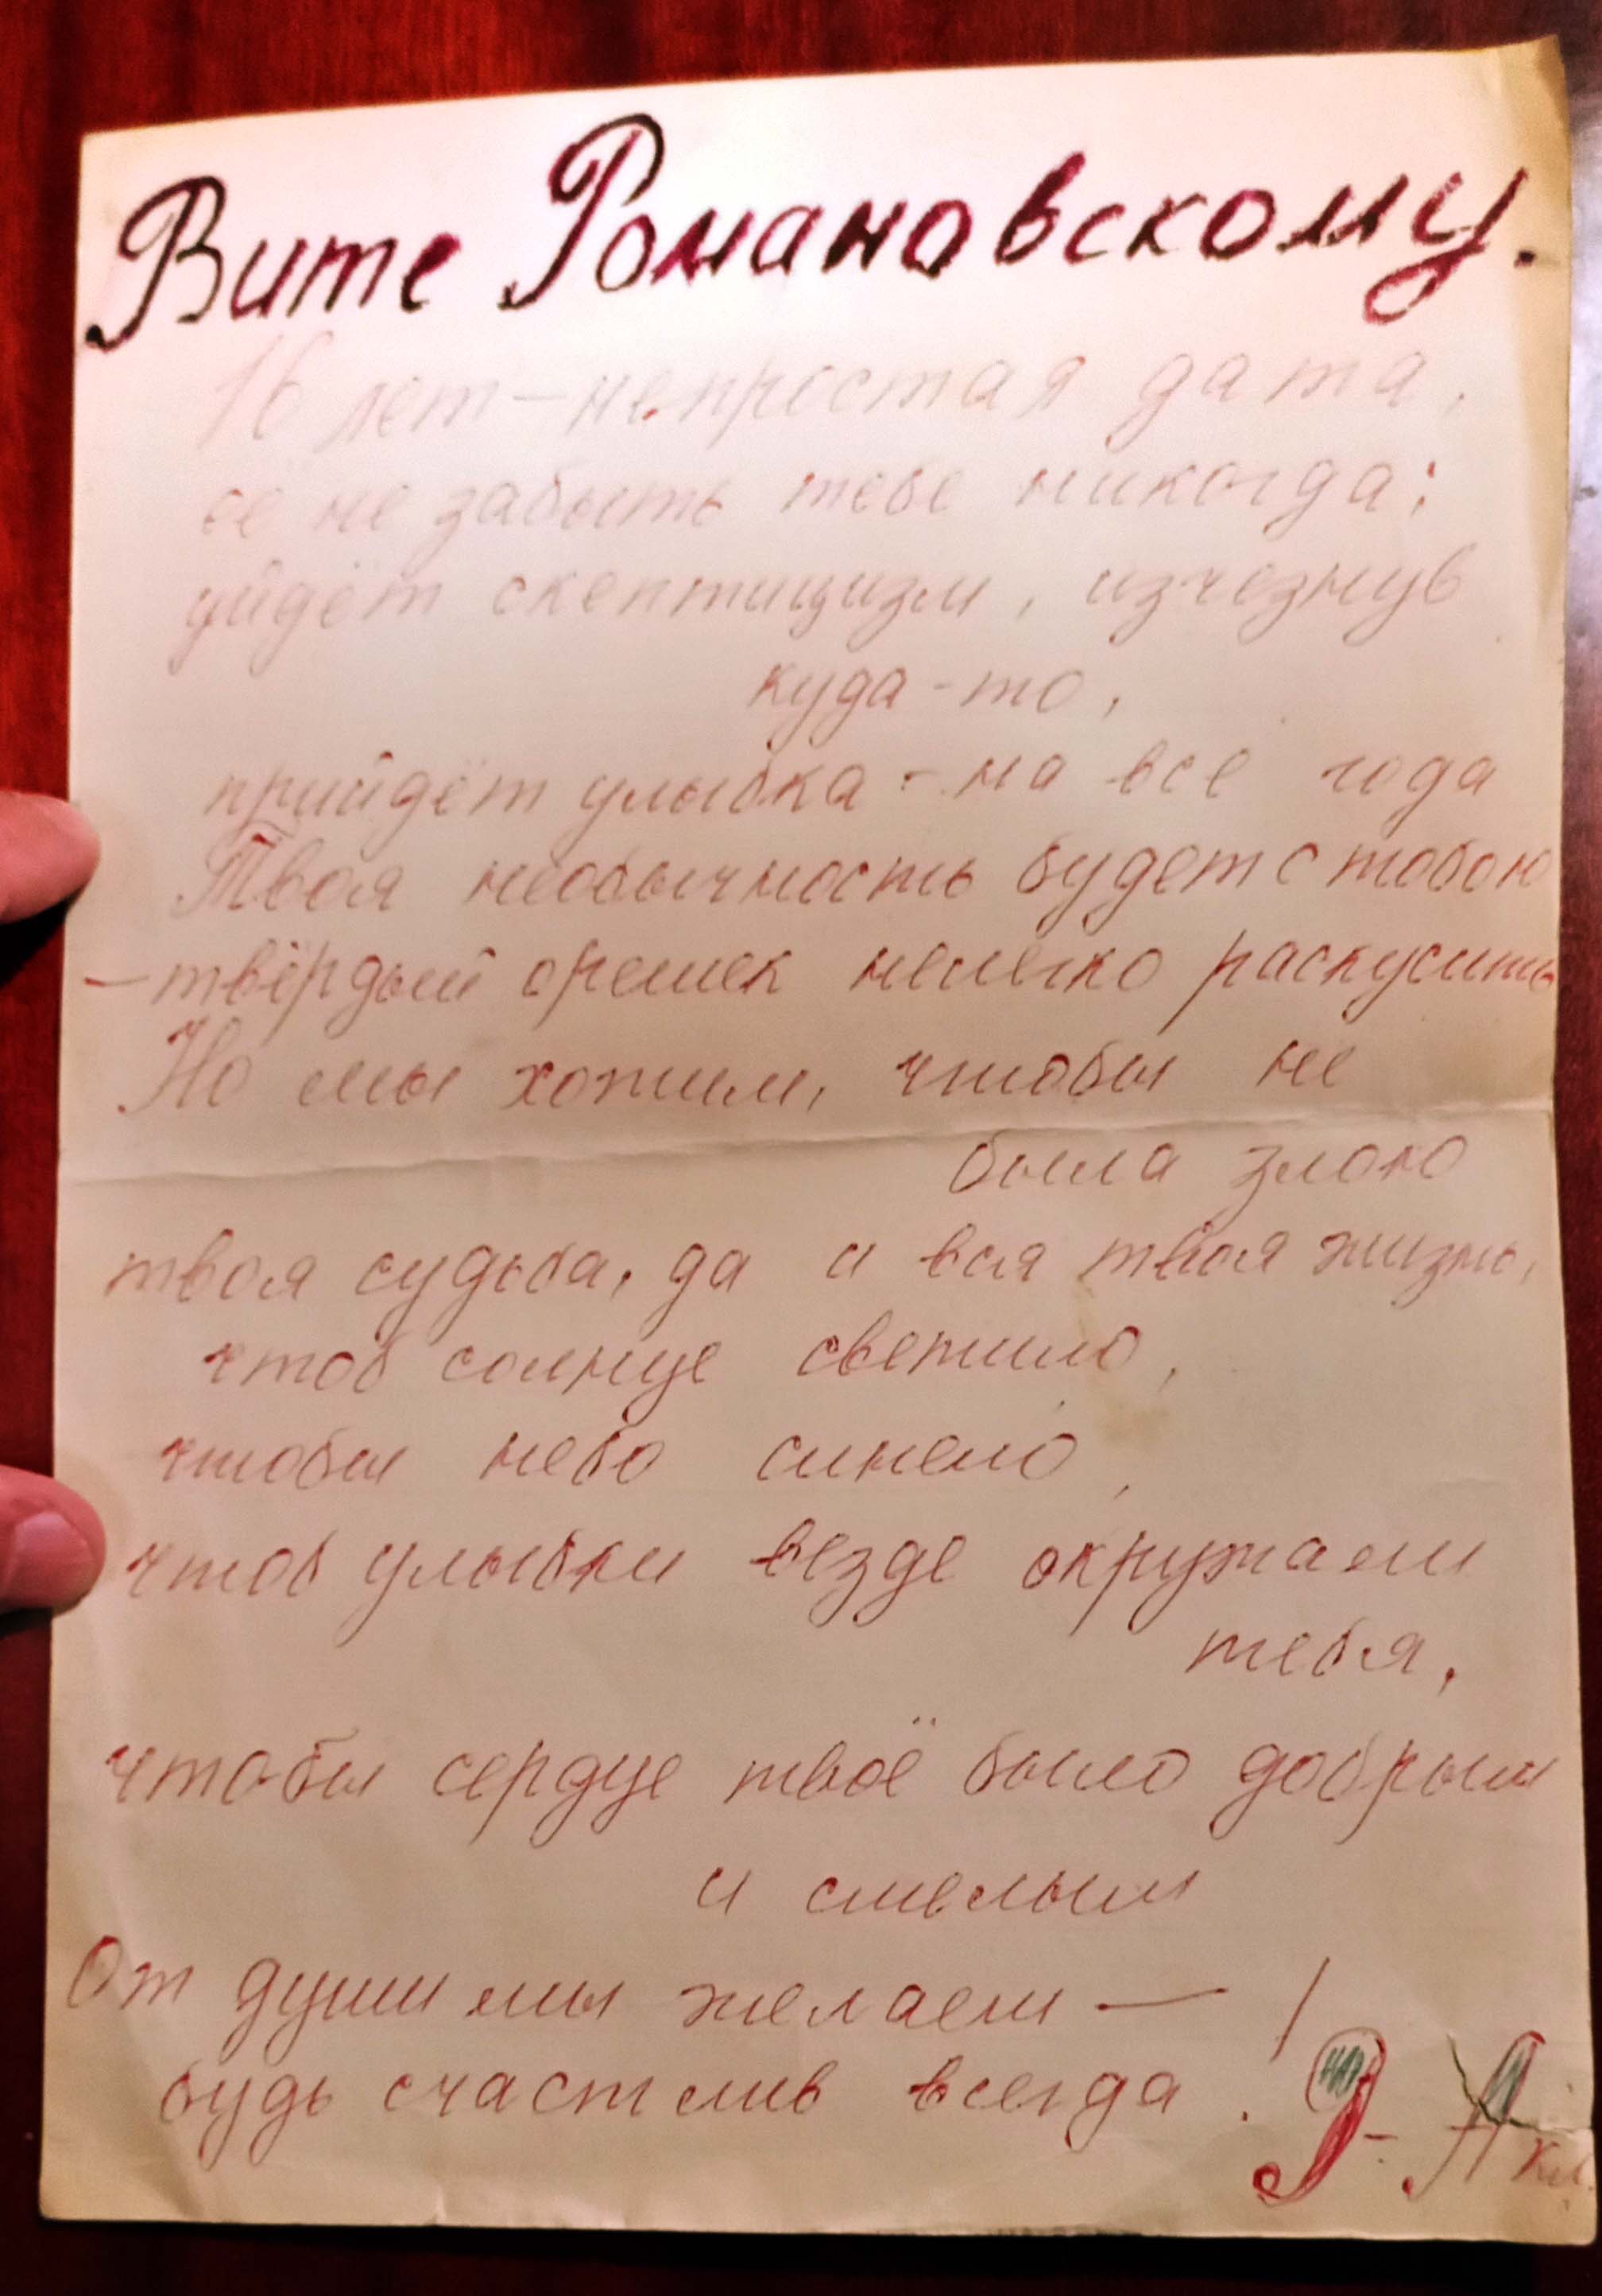 Вите Романовскому.
16 лет – непростая дата,
её не забыть тебе никогда;
уйдёт скептицизм, изчезнув
куда-то,
прийдёт улыбка - на все года
Твоя необычность будет с тобою
– твёрдый орешек нелегко раскусить
Но мы хотим, чтобы не
была злою
твоя судьба, да и вся твоя жизнь,
чтоб солнце светило,
чтобы небо синело,
чтоб улыбки везде окружали
тебя,
чтобы сердце твоё было добрым
и смелым
От души мы желаем — !
будь счастлив всегда.
9-А кл.